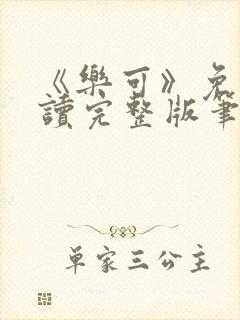 《樂可》免
讀完整版筆
单家三公主